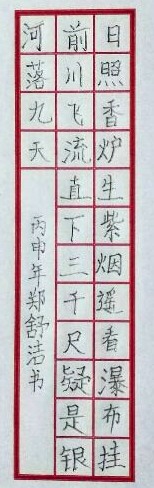 日照香炉生紫烟遥看瀑布挂
前川飞流直下三千尺疑是银
河落九天
丙申年郑舒洁书